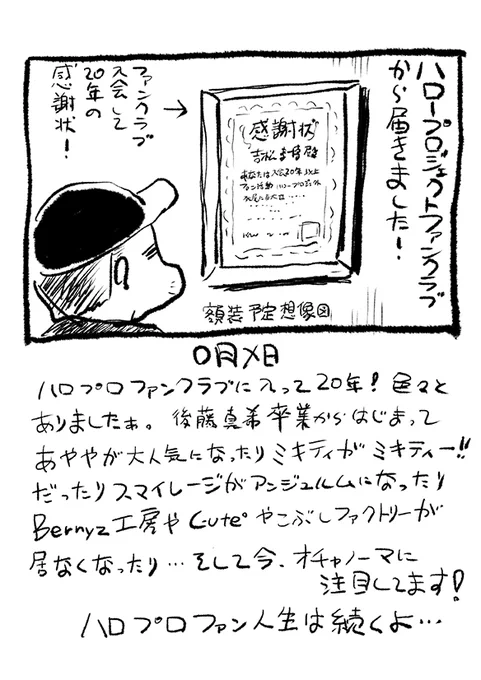 ハロープロジェクトファンクラブ
から届きました！
ファンクラブ
入会して
20年の
感謝状！
→
感謝状
殿
額装予定想像図
○月×日
ハロプロファンクラブに入って20年！色々と
ありましたぁ。後藤真希卒業からはじまって
あややが大人気になったりミキティがミキティー!!
だったりスマイレージがアンジュルムになったり
Berryz工房や℃-uteやこぶしファクトリーが
居なくなったり…そして今、オチャノーマに
注目してます！
ハロプロファン人生は続くよ…